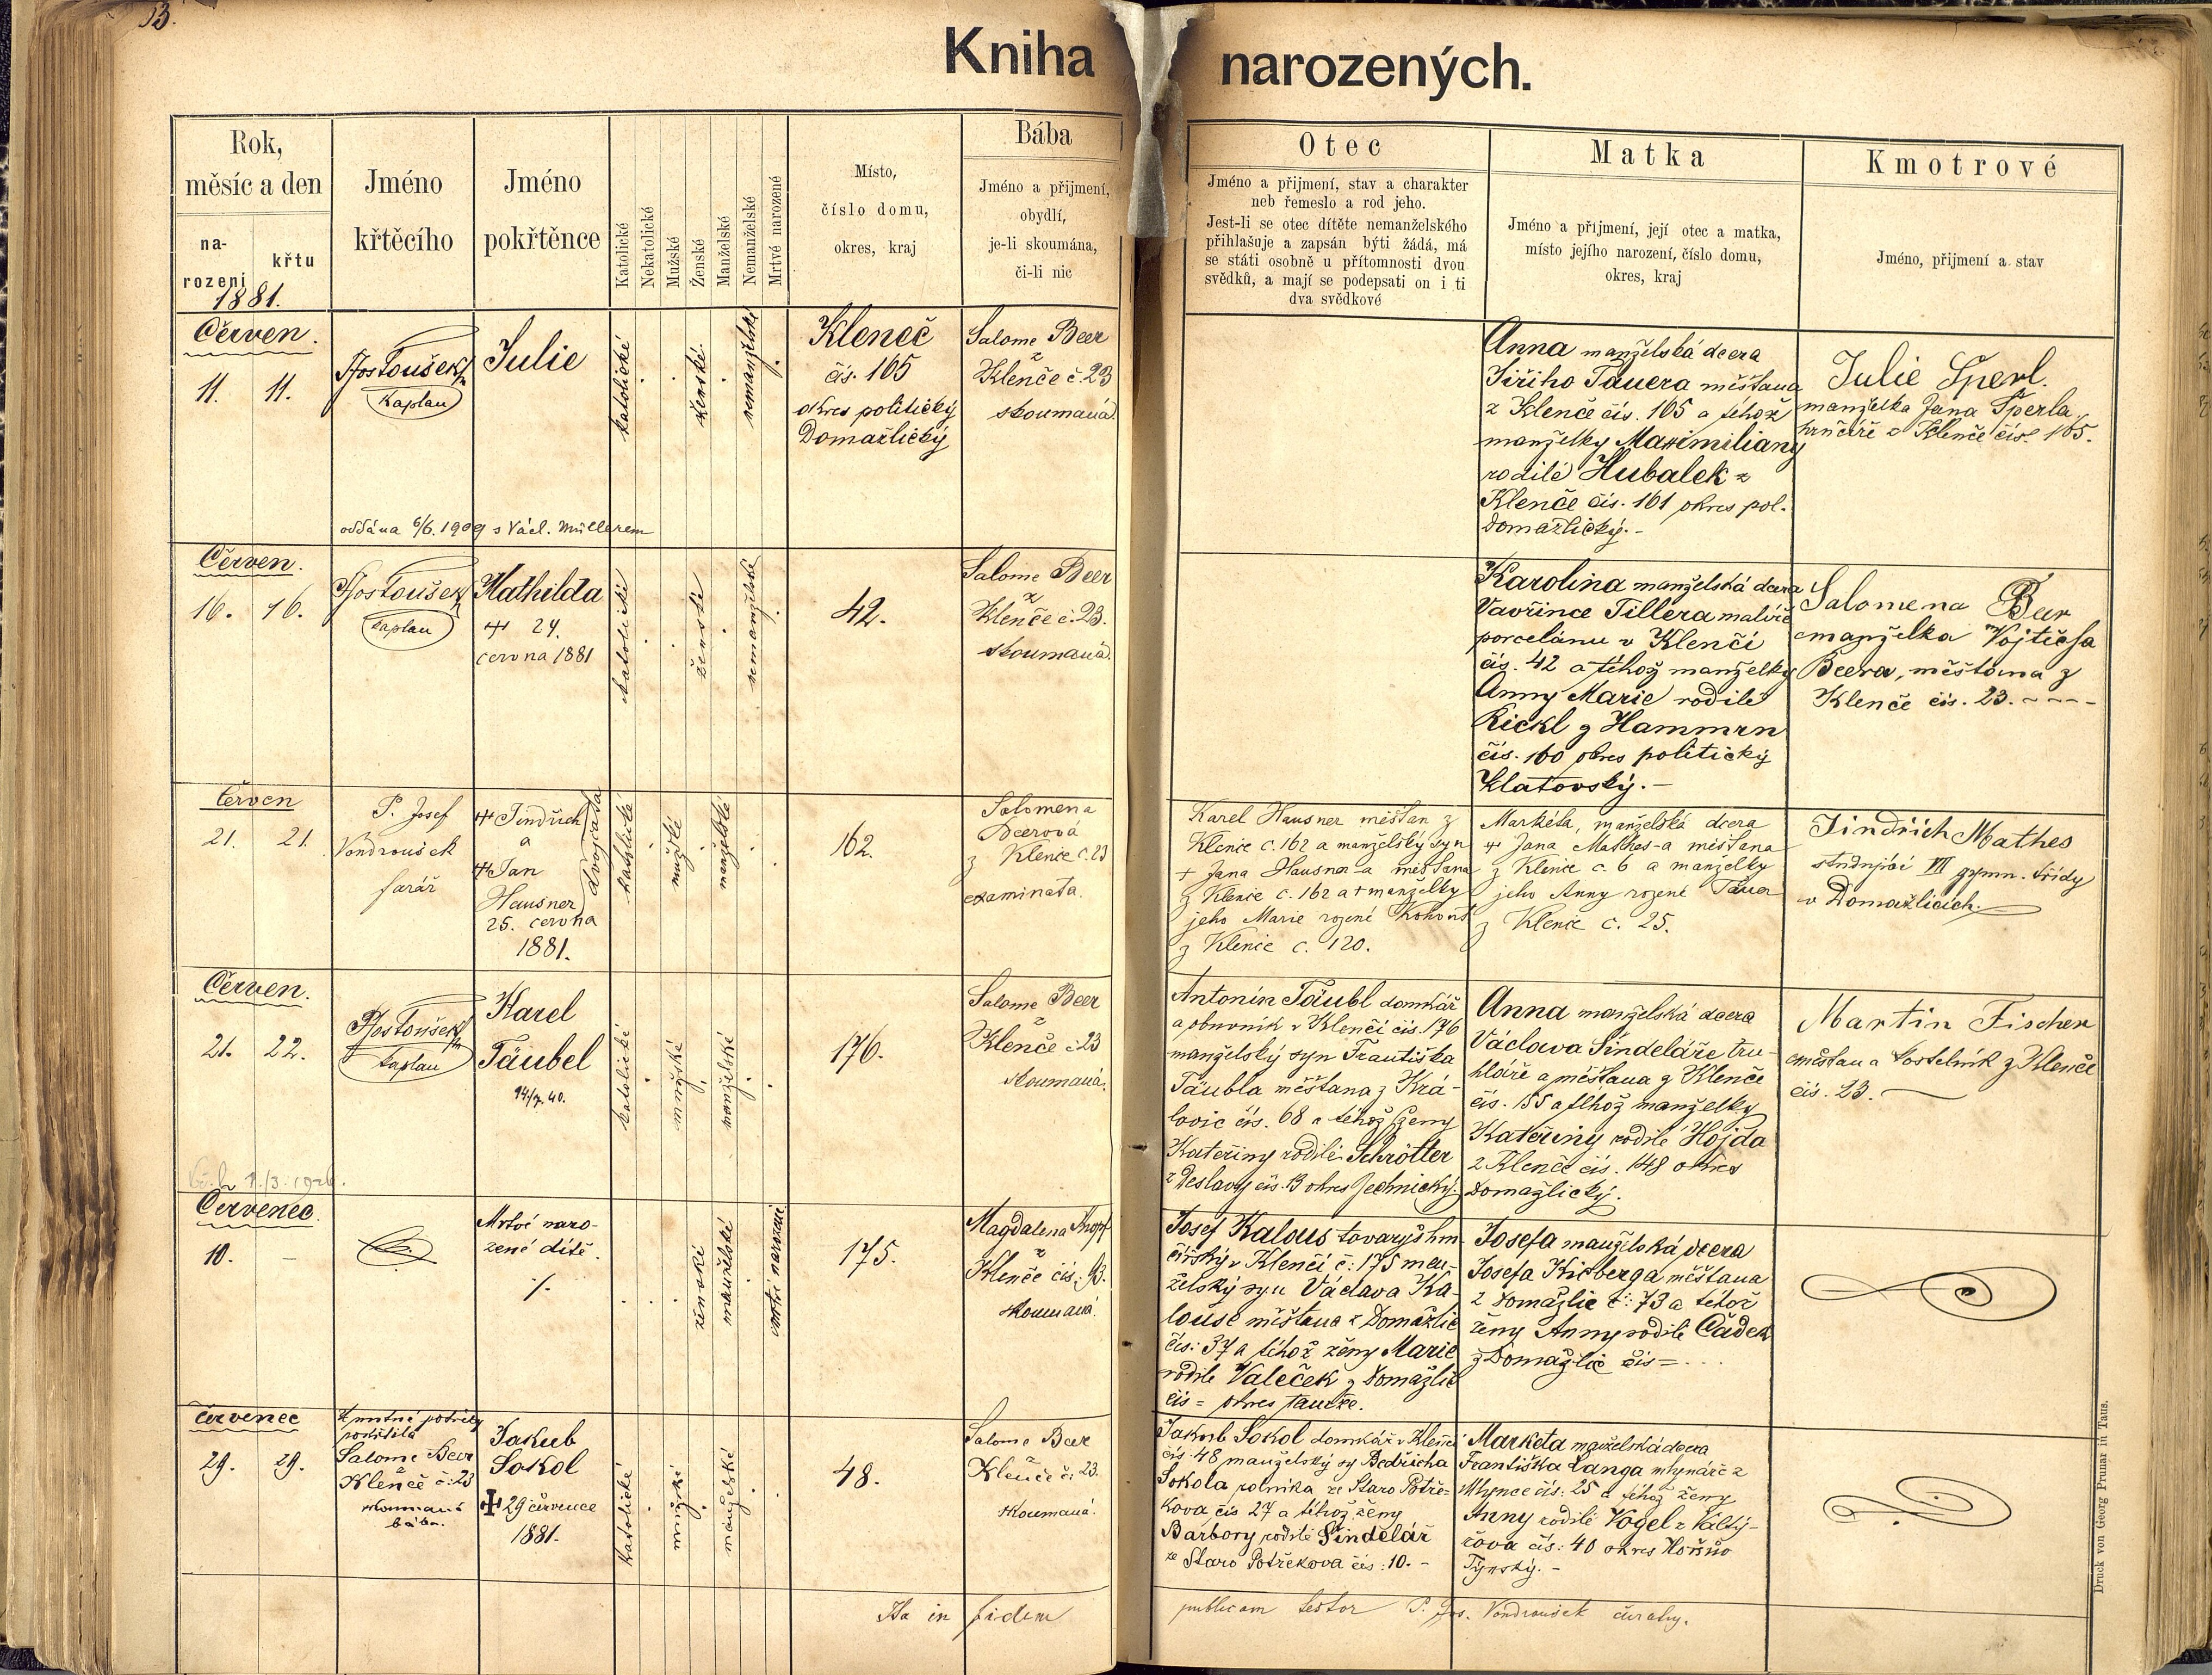 13.
Kniha narozených.
Rok,
měsíc a den
na-
rození
křtu
1881.
Jméno
křtěcího
Jméno
pokřtěnce
Katolické
Nekatolické
Mužské
Ženské
Manželské
Nemanželské
Mrtvé narozené
Místo,
číslo domu,
okres, kraj
Bába
Jméno a přijmení,
obydlí,
je-li skoumána,
či-li nic
Otec
Jméno a přijmení, stav a charakter
neb řemeslo a rod jeho.
Jest-li se otec dítěte nemanželského
přihlašuje a zapsán býti žádá, má
se státi osobně u přítomnosti dvou
svědků, a mají se podepsati on i ti
dva svědkové
Matka
Jméno a přijmení, její otec a matka,
místo jejího narození, číslo domu,
okres, kraj
Kmotrové
Jméno, přijmení a stav
Červen.
11. 11.
Kaplan
Julie
katolické
ženské.
nemanželské
Kleneč
čís. 165
okres politický
Domažlický
Salome Beer
z
Klenče č. 23
skoumaná.
Anna manželská dcera
Jiřího Tauera měšťana
z Klenče čís. 165 a téhož
manželky Maximiliany
rodilé Hubalek z
Klenče čís. 161 okres pol.
Domažlický.-
Julie Sperl.
manželka Jana Sperla,
hrnčíře z Klenče čís. 165.
oddána 6/6. 1909 s Václ. Müllerem
Červen.
16. 16.
Kaplan
Mathilda
24.
června 1881
katolické
ženské
nemanželské
42.
Salome Beer
z
Klenče č. 23.
skoumaná.
Karolina manželská dcera
Vavřince Tillera malíře
porcelánu v Klenčí
čís. 42 a téhož manželky
Anny Marie rodilé
Rickl z Hammrn
čís. 160 okres politický
Klatovský.-
Salomena Beer
manželka Vojtěcha
Beera, měšťana z
Klenče čís. 23.
červen
21. 21.
P. Josef
Vondroušek
farář
Jindřich
a
Jan
Hausner
dvojčata
25. června
1881.
katolické
mužské
manželské
162.
Salomena
Beerová
z Klenče č. 23
examinata.
Karel Hausner měšťan z
Klenče č. 162 a manželský syn
+ Jana Hausner-a měšťana
z Klenče č. 162 a + manželky
jeho Marie rozené Kohout
z Klenče č. 120.
Markéta, manželská dcera
+ Jana Mathes-a měšťana
z Klenče č. 6 a manželky
jeho Anny rozené Tauer
z Klenče č. 25.
Jindřich Mathes
studující VII gymn. třídy
v Domažlicích.
Červen.
21. 22.
kaplan
Karel
Täubel
14/7. 40.
katolické
mužské
manželské
176.
Salome Beer
z
Klenče č 23
skoumaná.
Antonín Täubl domkář
a obuvník v Klenčí čís. 176
manželský syn Františka
Täubla měšťana z Krá-
lovic čís. 68 a téhož ženy
Kateřiny rodilé Schrötter
z Deslavy čís. 13 okres Jechnický.
Anna manželská dcera
Václava Šindeláře tru-
hláře a měšťana z Klenče
čís. 155 a téhož manželky
Kateřiny rodilé Hojda
z Klenče čís. 148 okres
Domažlický.
Martin Fischer
měšťan a kostelník z Klenče
čís. 23.
Červenec.
10. –
Mrtvě naro-
zené dítě.
ženské
manželské
mrtvě narozené
175.
Magdalena Knopf
z
Klenče čís. 93.
skoumaná.
Josef Kalous tovaryš hrn-
čířský v Klenčí č: 175 man-
želský syn Václava Ka-
louse měšťana z Domažlic
čís: 37 a téhož ženy Marie
rodilé Valeček z Domažlic
čís = okres tamže.
Josefa manželská dcera
Josefa Kicberga měšťana
z Domažlic č: 73 a téhož
ženy Anny rodilé Čadek
z Domažlic čís = . . .
červenec
29. 29.
V nutné potřeby
pokřtila
Salome Beer
z
Klenče č: 23
skoumaná
bába.
Jakub
Sokol
29 července
1881.
katolické
mužské
manželské
48.
Salome Beer
z
Klenče č: 23.
skoumaná.
Jakub Sokol domkář v Klenčí
čís. 48 manželský sy Bedřicha
Sokola rolníka ze Staro Potře-
kova čís 27 a téhož ženy
Barbory rodilé Šindělář
ze Staro Potřekova čís: 10. -
Marketa manželská dcera
Františka Langa mlynáře z
Mlynce čís: 25 a téhož ženy
Anny rodilé Vogel z Valdý-
řova čís: 40 okres Horšův
Týnský. -
Ita in fidem publicam testor P. Jos. Vondroušek
Druck von Georg Prunar in Taus.